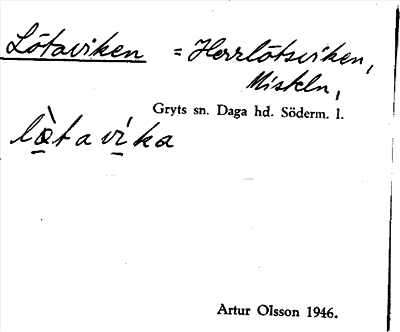 Lötaviken = Herrlötsviken,
Miskeln,
Gryts sn. Daga hd. Söderm. l.
læ̀tavika
Artur Olsson 1946.